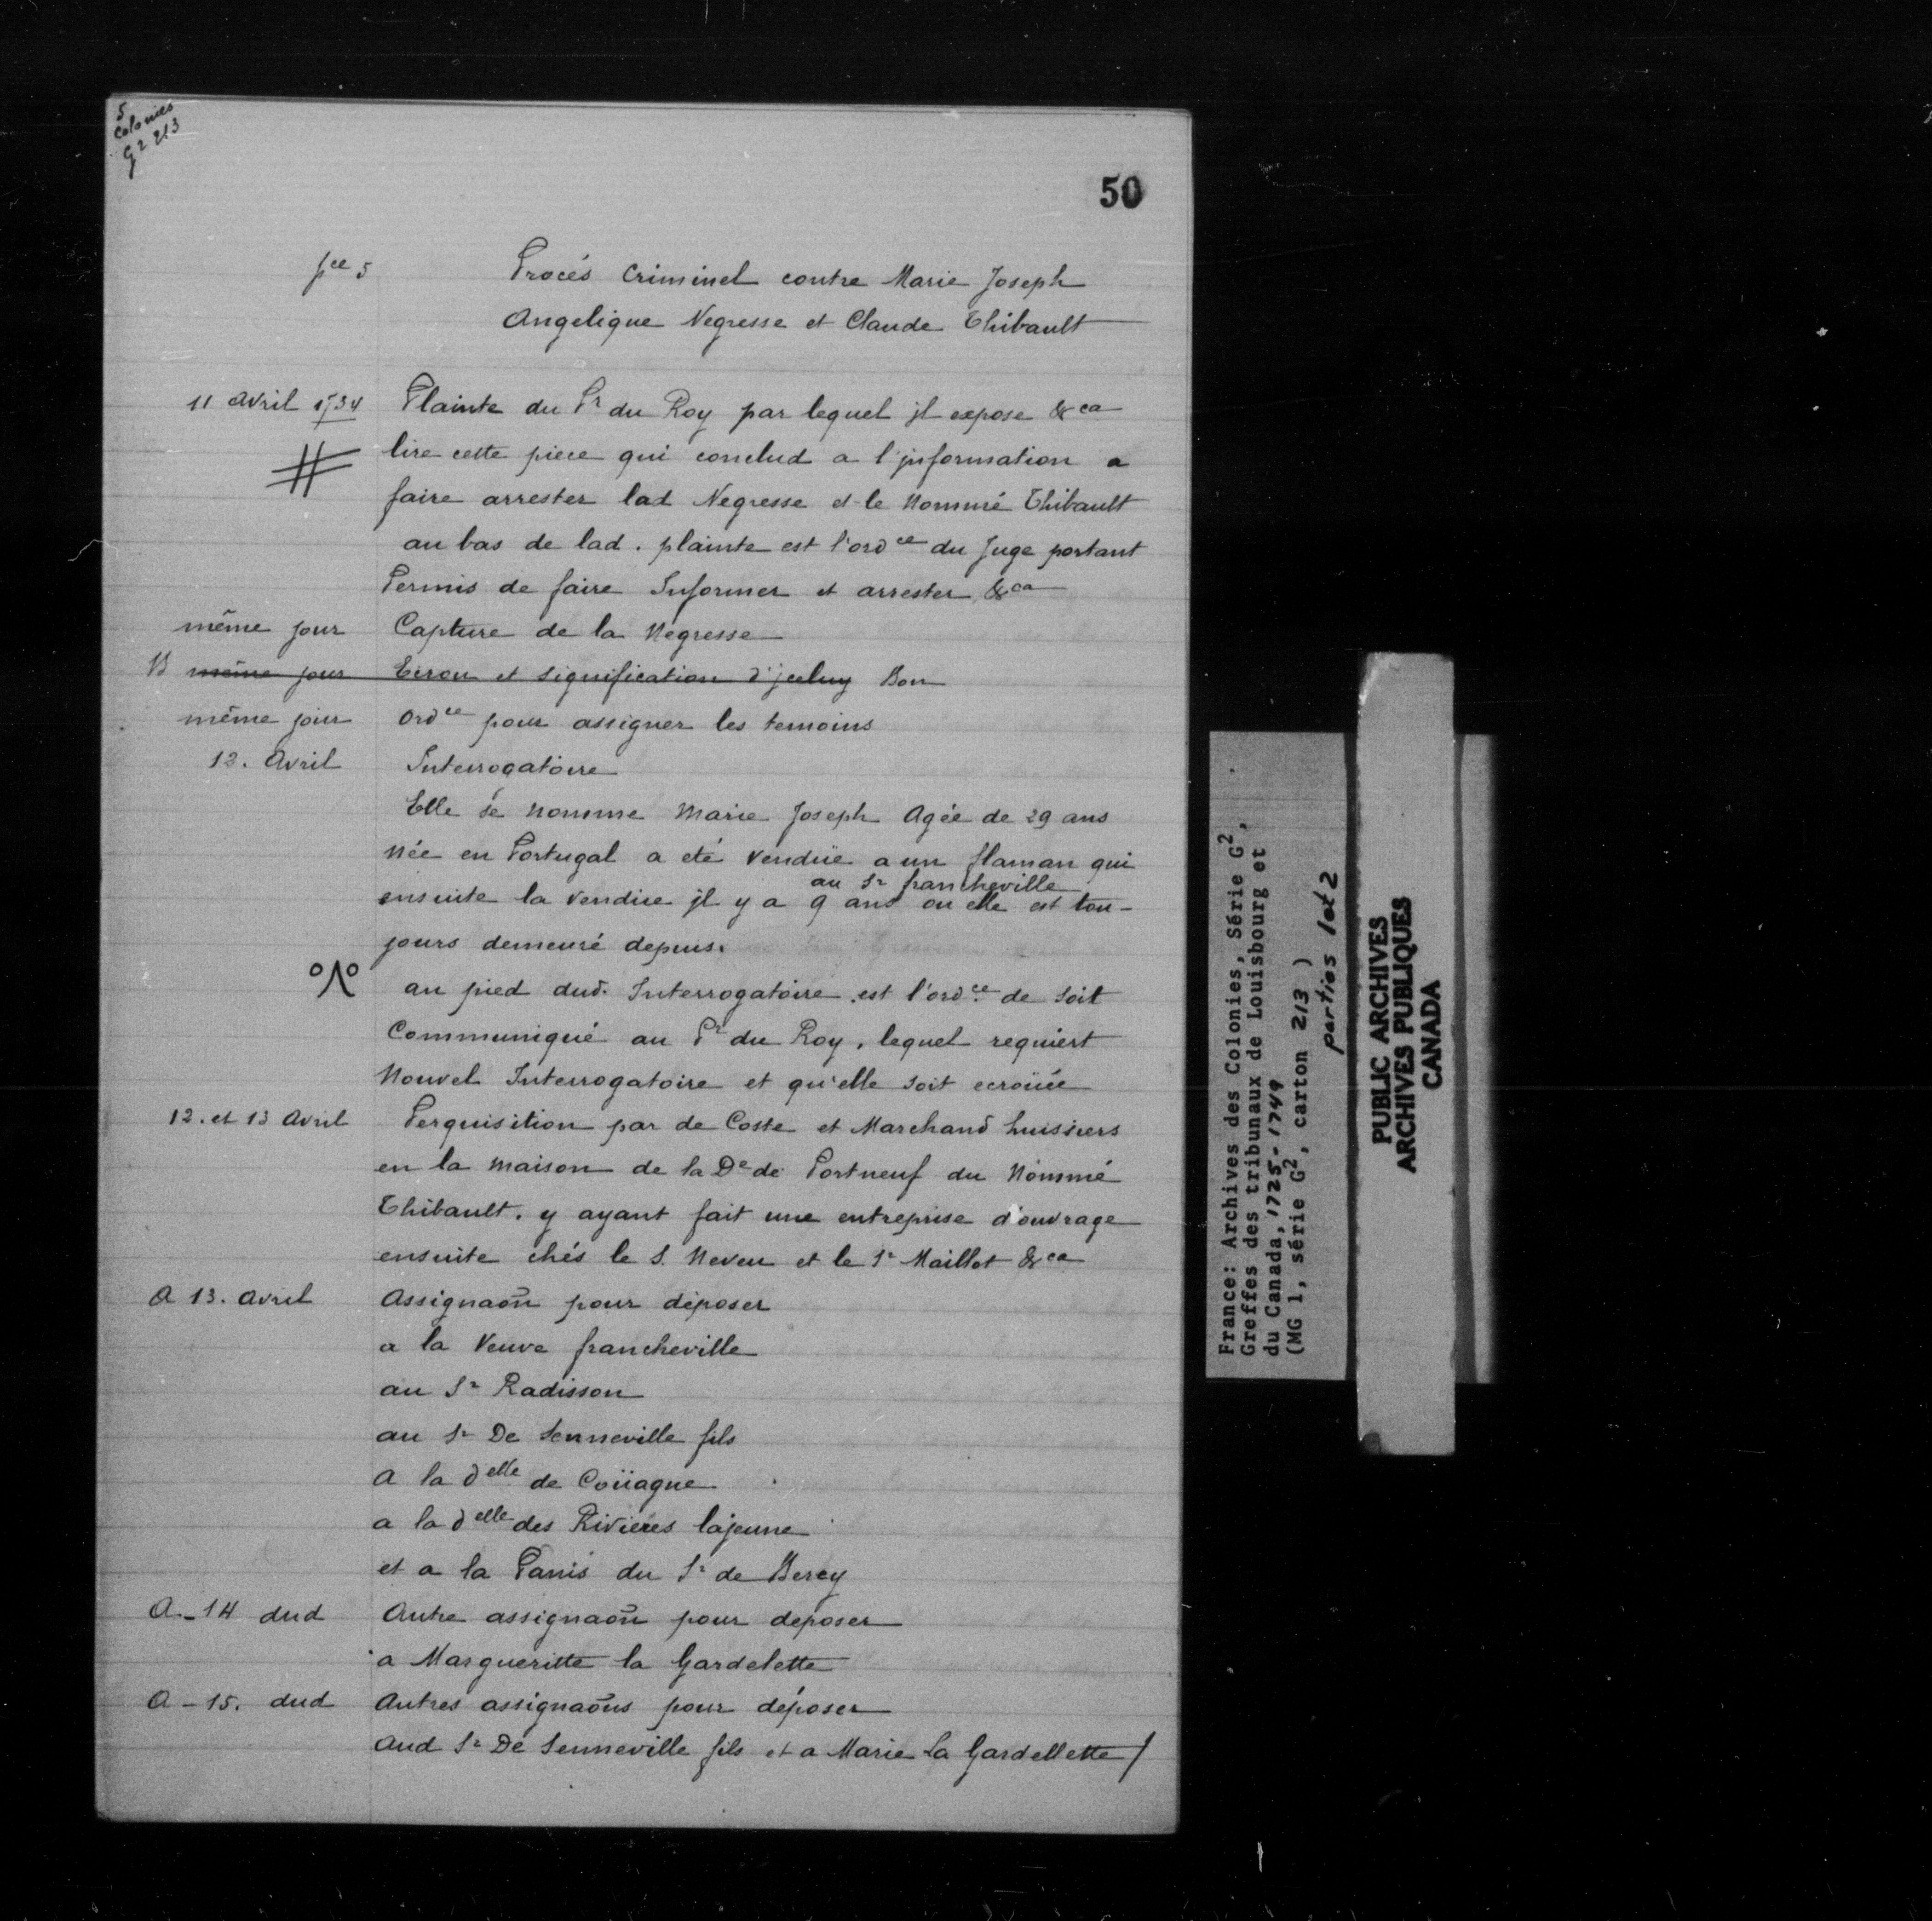 5
Colonies
G2 213
50
pce 5
Procés Criminel contre Marie Joseph
Angelique Negresse et Claude Thibault
11 avril 1734 Plainte du Pr du Roy par lequel jl expose &ca
lire cette piece qui conclud a l'jnformation a
faire arrester lad Negresse et le Nommé Thibault
au bas de lad. plainte est l'ordce du Juge portant
Permis de faire Informer et arrester &ca
même jour Capture de la Negresse
B même jour Ecrou et signification d'jceluy Bon
même jour Ordce pour assigner les temoins
12. Avril Interrogatoire
Elle se nomme Marie Joseph Agée de 29 ans
Née en Portugal a eté Vendüe a un flaman qui
au Sr francheville
ensuite la vendue jl y a 9 ans ou elle est tou-
jours demeuré depuis.
au pied dud. Interrogatoire est l'ordce de soit
Communiqué au Pr du Roy, lequel requiert
Nouvel Interrogatoire et qu'elle soit ecroüée
12. et 13 Avril Perquisition par de Coste et Marchand huissiers
en la maison de la De de Portneuf du Nommé
Thibault. y ayant fait une entreprise d'ouvrage
ensuite chés le S. Neveu et le Sr Maillot &ca
A 13. avril Assignaōn pour déposer
a la Veuve francheville
au Sr Radisson
au Sr De Senneville fils
A la delle de Coüagne
a la delle des Rivieres lajeune
et a la Panis du Sr de Berey
A. 14 dud Autre assignaōn pour deposer
a Margueritte la Gardelette
A - 15. dud Autres assignaōns pour déposer
Aud Sr De Senneville fils et a Marie La Gardellette /
France: Archives des Colonies, Série G2,
Greffes des tribunaux de Louisbourg et
du Canada, 1725-1749
(MG 1, série G2, carton 213)
parties 1et2
PUBLIC ARCHIVES
ARCHIVES PUBLIQUES
CANADA